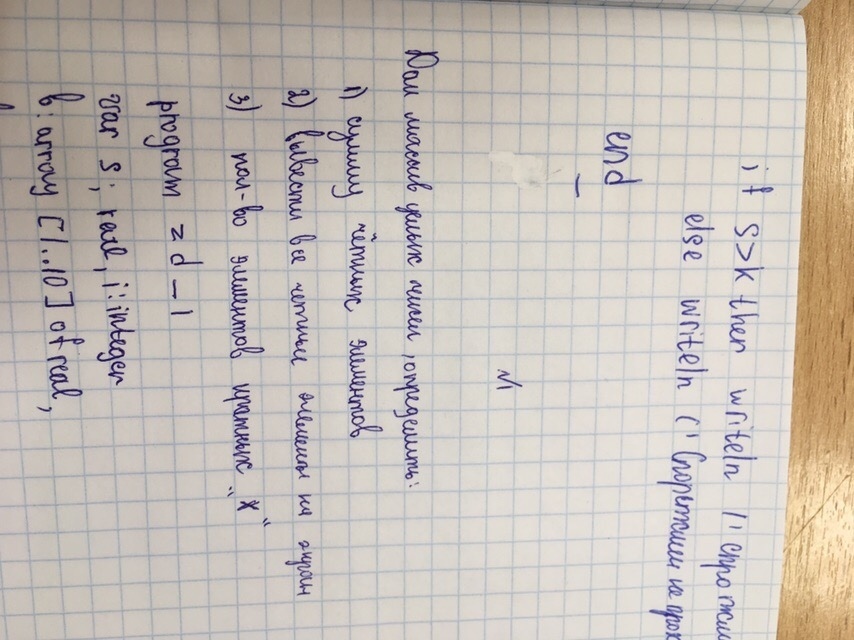 if s>k then writeln ('спортсм
else writeln ('Спортсмен не прох
end
№
Дан массив целых чисел, определить:
1) сумму чётных элементов
2) вывести все четные элементы на экран
3) кол-во элементов кратных "x"
program zd-1
var s; real, i:integer
b: array [1..10] of real,